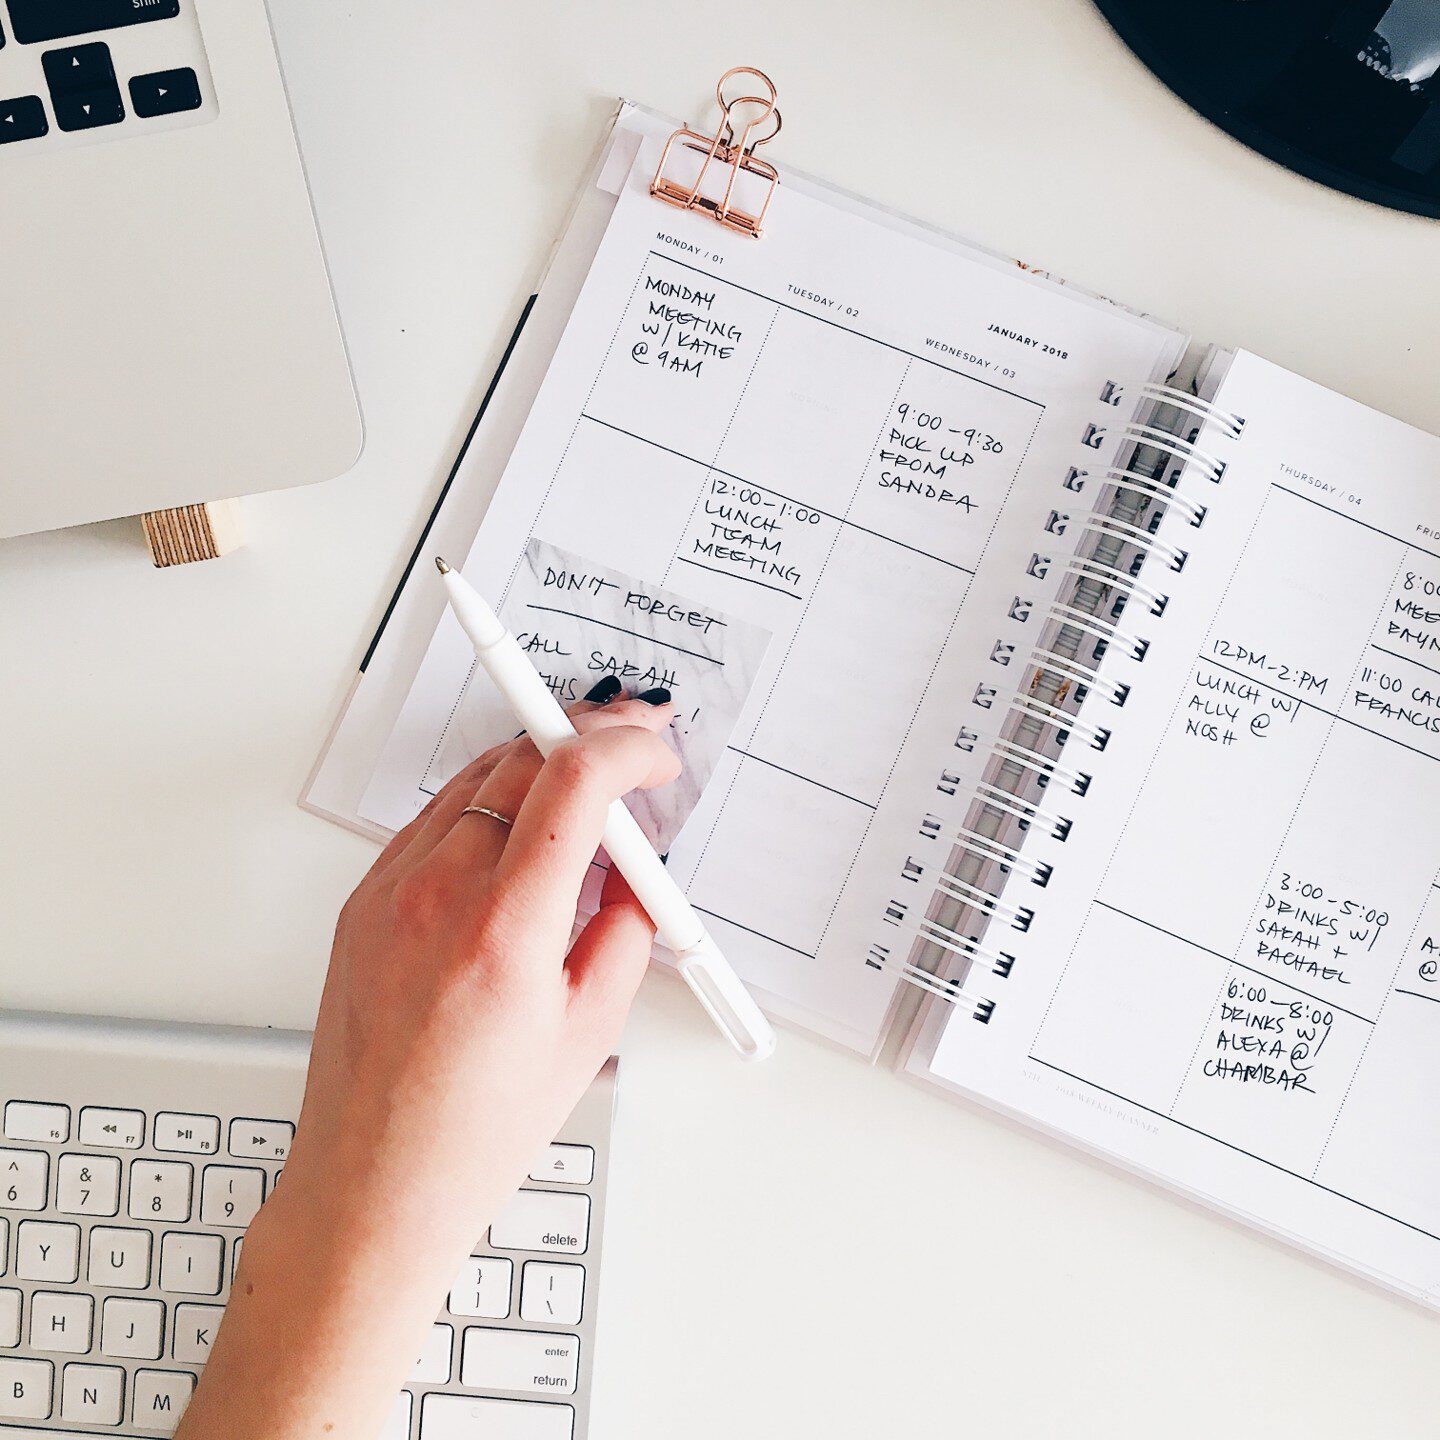 MONDAY / 01
MONDAY
MEETING
W/ KATIE
@ 9AM
TUESDAY / 02
12:00-1:00
LUNCH
TEAM
MEETING
JANUARY 2018
WEDNESDAY / 03
9:00-9:30
PICK UP
FROM
SANDRA
DON'T FORGET
CALL SARAH
THIS
!
THURSDAY / 04
12PM-2:PM
LUNCH W/
ALLY @
NOSH
6:00-8:00
DRINKS W/
ALEXA @
CHAMBAR
11:00
3:00-5:00
DRINKS W/
SARAH +
RACHAEL
@
WEEKLY PLANNER
shift
F6
F7
F8
F9
^
6
&
7
*
8
(
9
delete
Y
U
I
}
]
|
\
H
J
K
enter
return
B
N
M